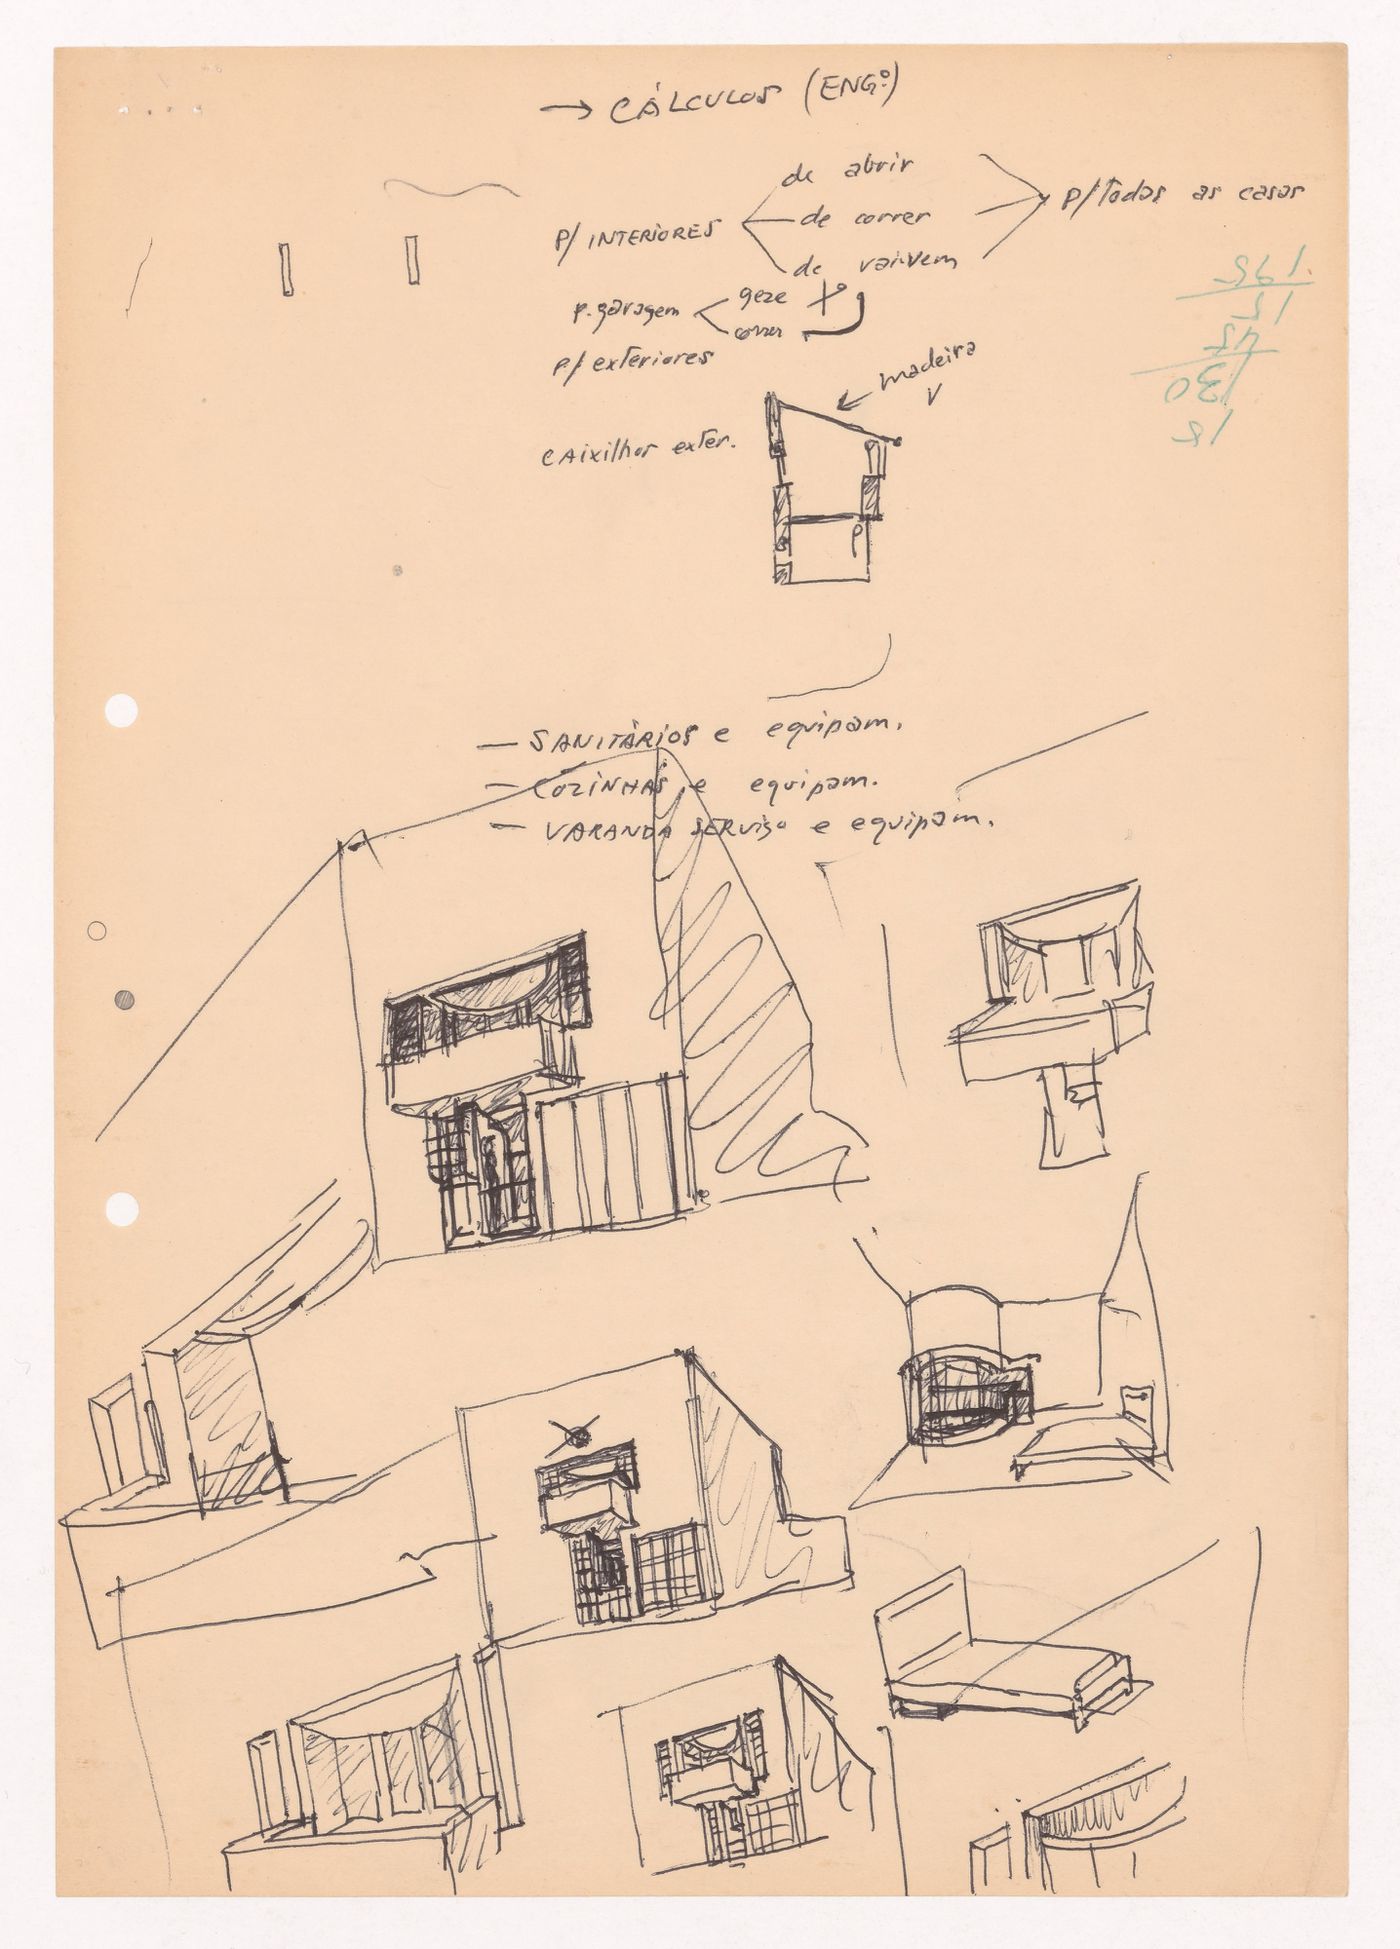 → CÁLCULOS (ENGº)
P/ INTERIORES
de abrir
de correr
de vaivem
P/ todas as casas
P. garagem
geze
correr
P/ exteriores
madeira
V
CAixilhos exter.
P
— SANITÁRIOS e equipam.
— COZINHAS e equipam.
— VARANDA SERViço e equipam.
195
15
45
130